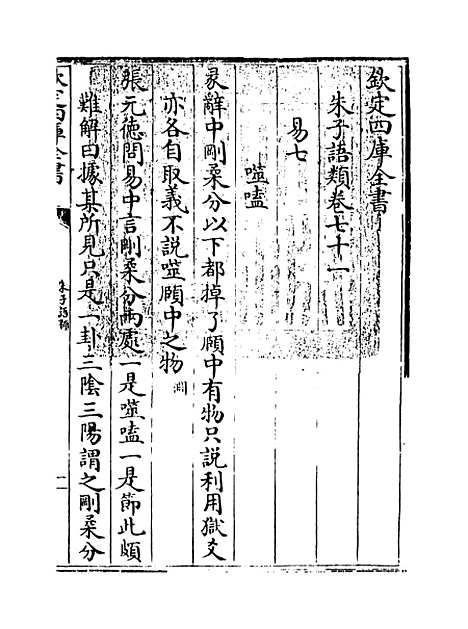 欽定四庫全書
朱子語類卷七十一
易七
噬嗑
彖辭中剛柔分以下都掉了頤中有物只說利用獄爻
亦各自取義不說噬頤中之物淵
張元徳問易中言剛柔分兩處一是噬嗑一是節此頗
難解曰據某所見只是一卦三陰三陽謂之剛柔分
欽定四庫全書
朱子語類
一